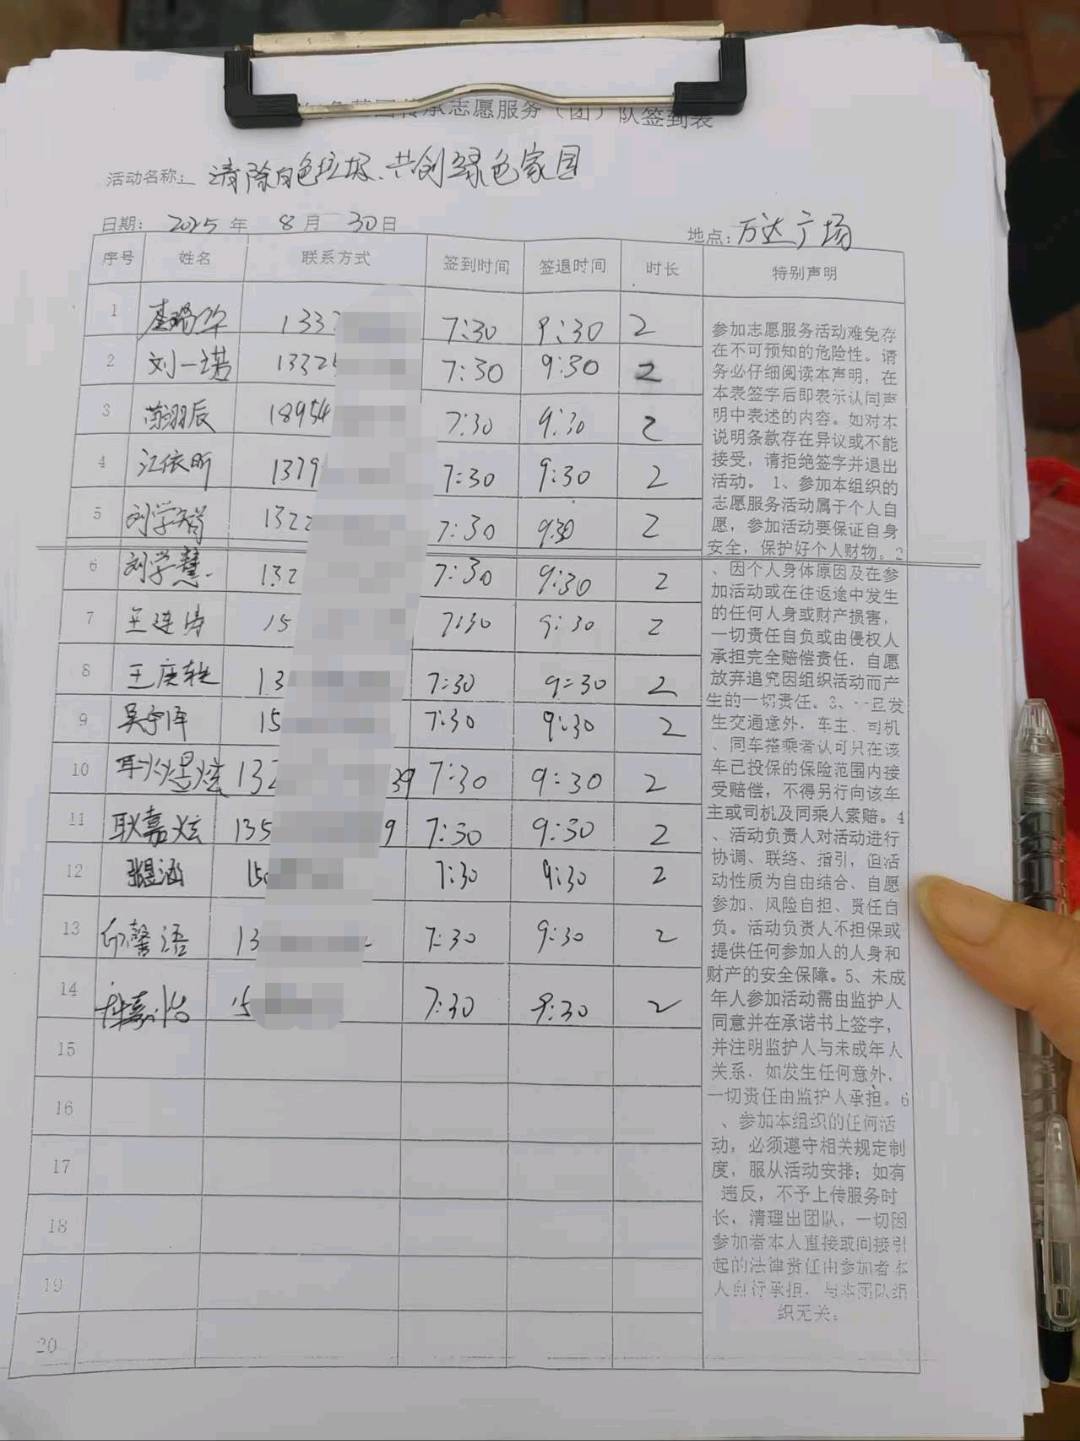 红色基因传承志愿服务（团）队签到表
活动名称：清除白色垃圾、共创绿色家园
日期： 2025 年 8 月 30 日 地点：万达广场
序号 姓名 联系方式 签到时间 签退时间 时长 特别声明
1 1337 7:30 9:30 2
2 刘一诺 1332 7:30 9:30 2
3 陈翊辰 18954 7:30 9:30 2
4 江依昕 1379 7:30 9:30 2
5 刘学智 1322 7:30 9:30 2
6 刘学慧 132 7:30 9:30 2
7 王连涛 15 7:30 9:30 2
8 王庚轶 13 7:30 9:30 2
9 吴宇泽 15 7:30 9:30 2
10 耿煜炫 132 39 7:30 9:30 2
11 耿嘉炫 135 9 7:30 9:30 2
12 张煜涵 150 7:30 9:30 2
13 馨语 13 7:30 9:30 2
14 嘉怡 15 7:30 9:30 2
15
16
17
18
19
20
参加志愿服务活动难免存
在不可预知的危险性。请
务必仔细阅读本声明，在
本表签字后即表示认同声
明中表述的内容。如对本
说明条款存在异议或不能
接受，请拒绝签字并退出
活动。 1、参加本组织的
志愿服务活动属于个人自
愿，参加活动要保证自身
安全，保护好个人财物。2
、因个人身体原因及在参
加活动或在往返途中发生
的任何人身或财产损害，
一切责任自负或由侵权人
承担完全赔偿责任，自愿
放弃追究因组织活动而产
生的一切责任。3、一旦发
生交通意外，车主、司机
、同车搭乘者认可只在该
车已投保的保险范围内接
受赔偿，不得另行向该车
主或司机及同乘人索赔。4
、活动负责人对活动进行
协调、联络、指引，但活
动性质为自由结合、自愿
参加、风险自担、责任自
负。活动负责人不担保或
提供任何参加人的人身和
财产的安全保障。5、未成
年人参加活动需由监护人
同意并在承诺书上签字，
并注明监护人与未成年人
关系，如发生任何意外，
一切责任由监护人承担。6
、参加本组织的任何活
动，必须遵守相关规定制
度，服从活动安排；如有
违反，不予上传服务时
长，清理出团队，一切因
参加者本人直接或间接引
起的法律责任由参加者本
人自行承担，与本团队组
织无关。